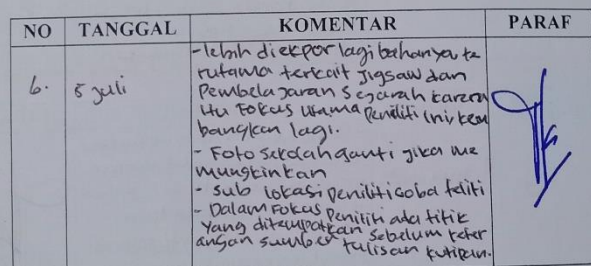 NO TANGGAL KOMENTAR PARAF
6. 5 juli
- lebih diekpor lagi bahanya te
rutama terkait Jigsaw dan
Pembelajaran Sejarah karena
itu Fokus utama peniliti ini, kem
bangkan lagi.
- Foto sekolah ganti jika me
mungkinkan
- Sub lokasi peniliti coba teliti
- Dalam Fokus peniliti ada titik
yang ditempatkan sebelum keter
angan sumber tulisan kutipan.